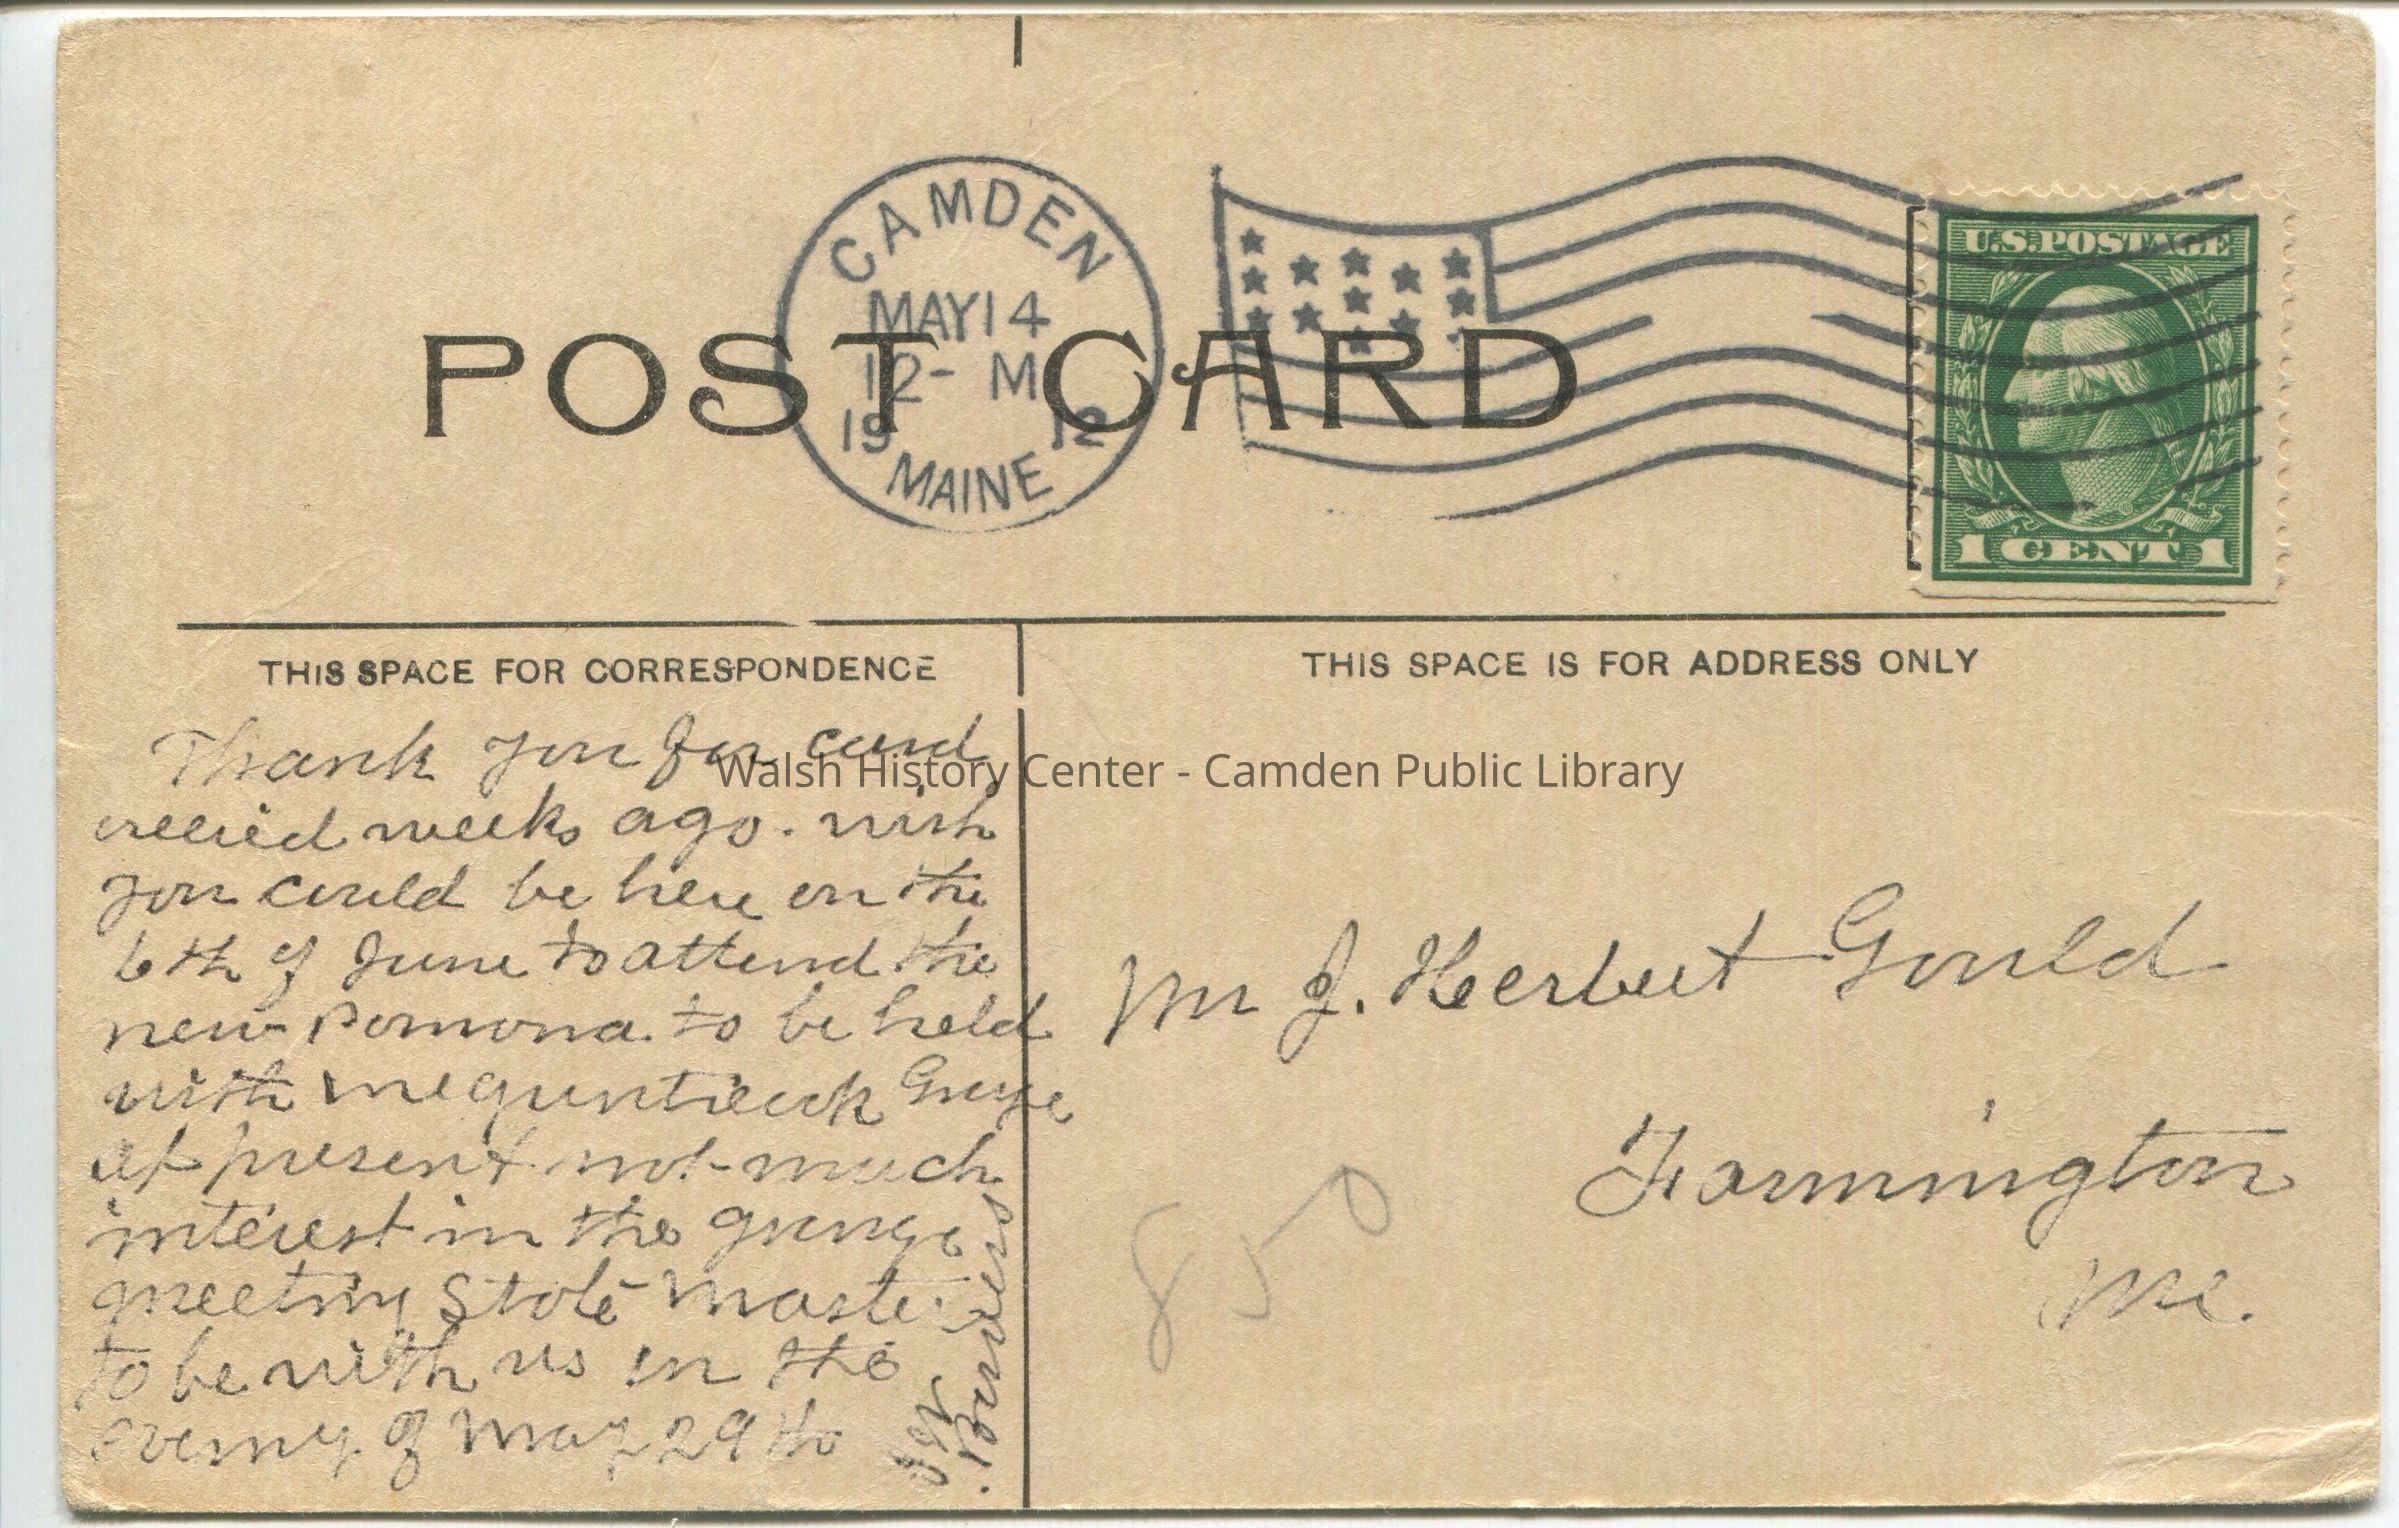 CAMDEN
MAY 14
12- M
19 12
MAINE
U.S. POSTAGE
1 CENT 1
POST CARD
THIS SPACE FOR CORRESPONDENCE
Thank you for card
weeks ago. wish
you could be here on the
6th of June to attend the
new Pomona. to be held
with Megunticook Grange
at present not much
interest in the grange
meeting State Master
to be with us in the
evening of May 29 th
THIS SPACE IS FOR ADDRESS ONLY
Mr J. Herbert Gould
Farmington
Me.
850
Walsh History Center - Camden Public Library